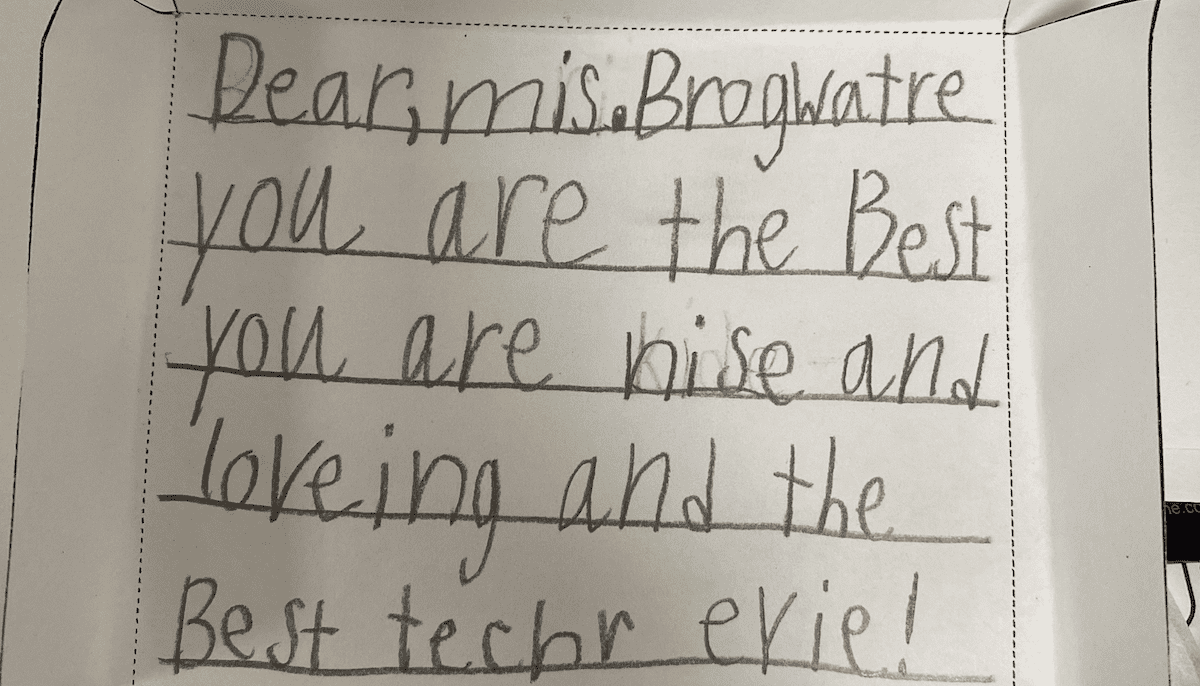 Dear, mis. Brogwatre
you are the Best
you are nise and
loveing and the
Best techr evie!